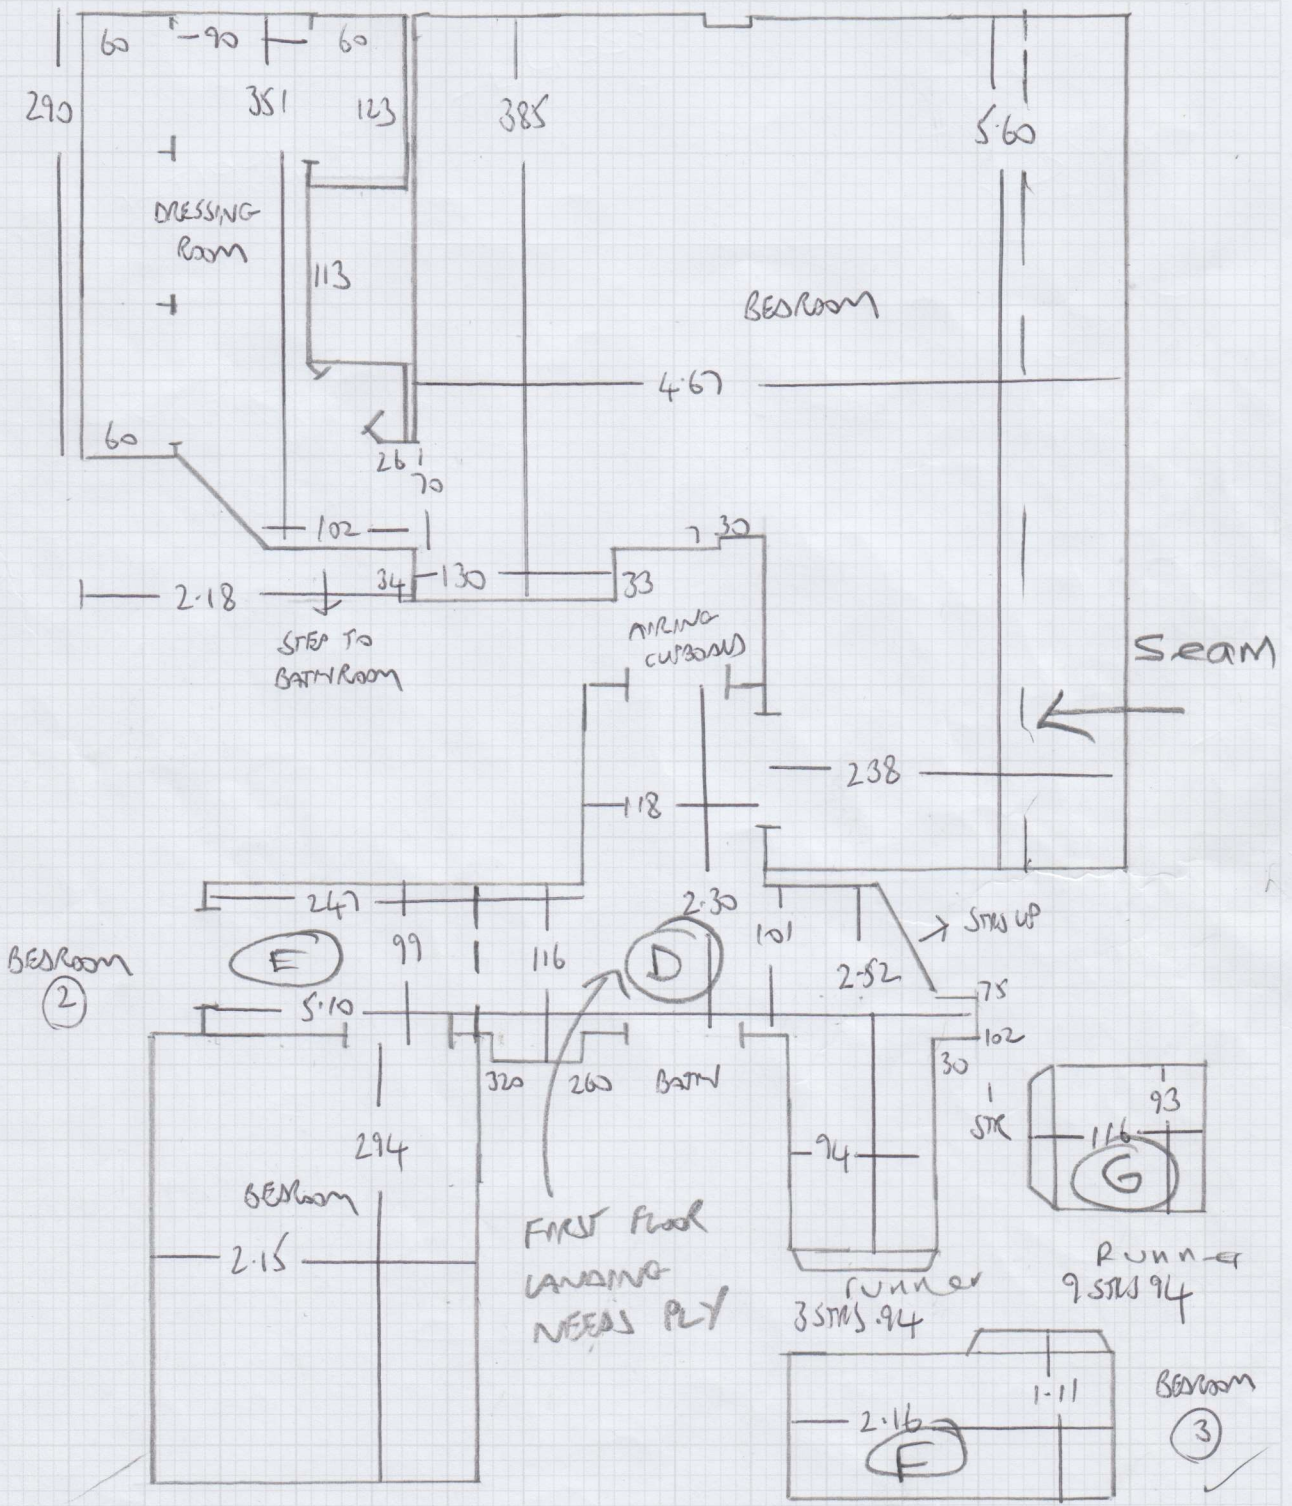 60 -90 60
290 351 123 385 5.60
DRESSING
ROOM
113
BEDROOM
4.67
60
26
70
102
7 30
34 130 33
2.18
STEP TO
BATHROOM
AIRING
CUPBOARD
Seam
238
118
247 2.30
101 STRS UP
BEDROOM
2
E 99 116 D 2.52
5.10 75
102
320 260 BATH 30
STR
93
294 94 116
G
BEDROOM
2.15
FIRST FLOOR
LANDING
NEEDS PLY
runner
3 STRS .94
Runner
9 STRS 94
1.11
2.16
F
BEDROOM
3